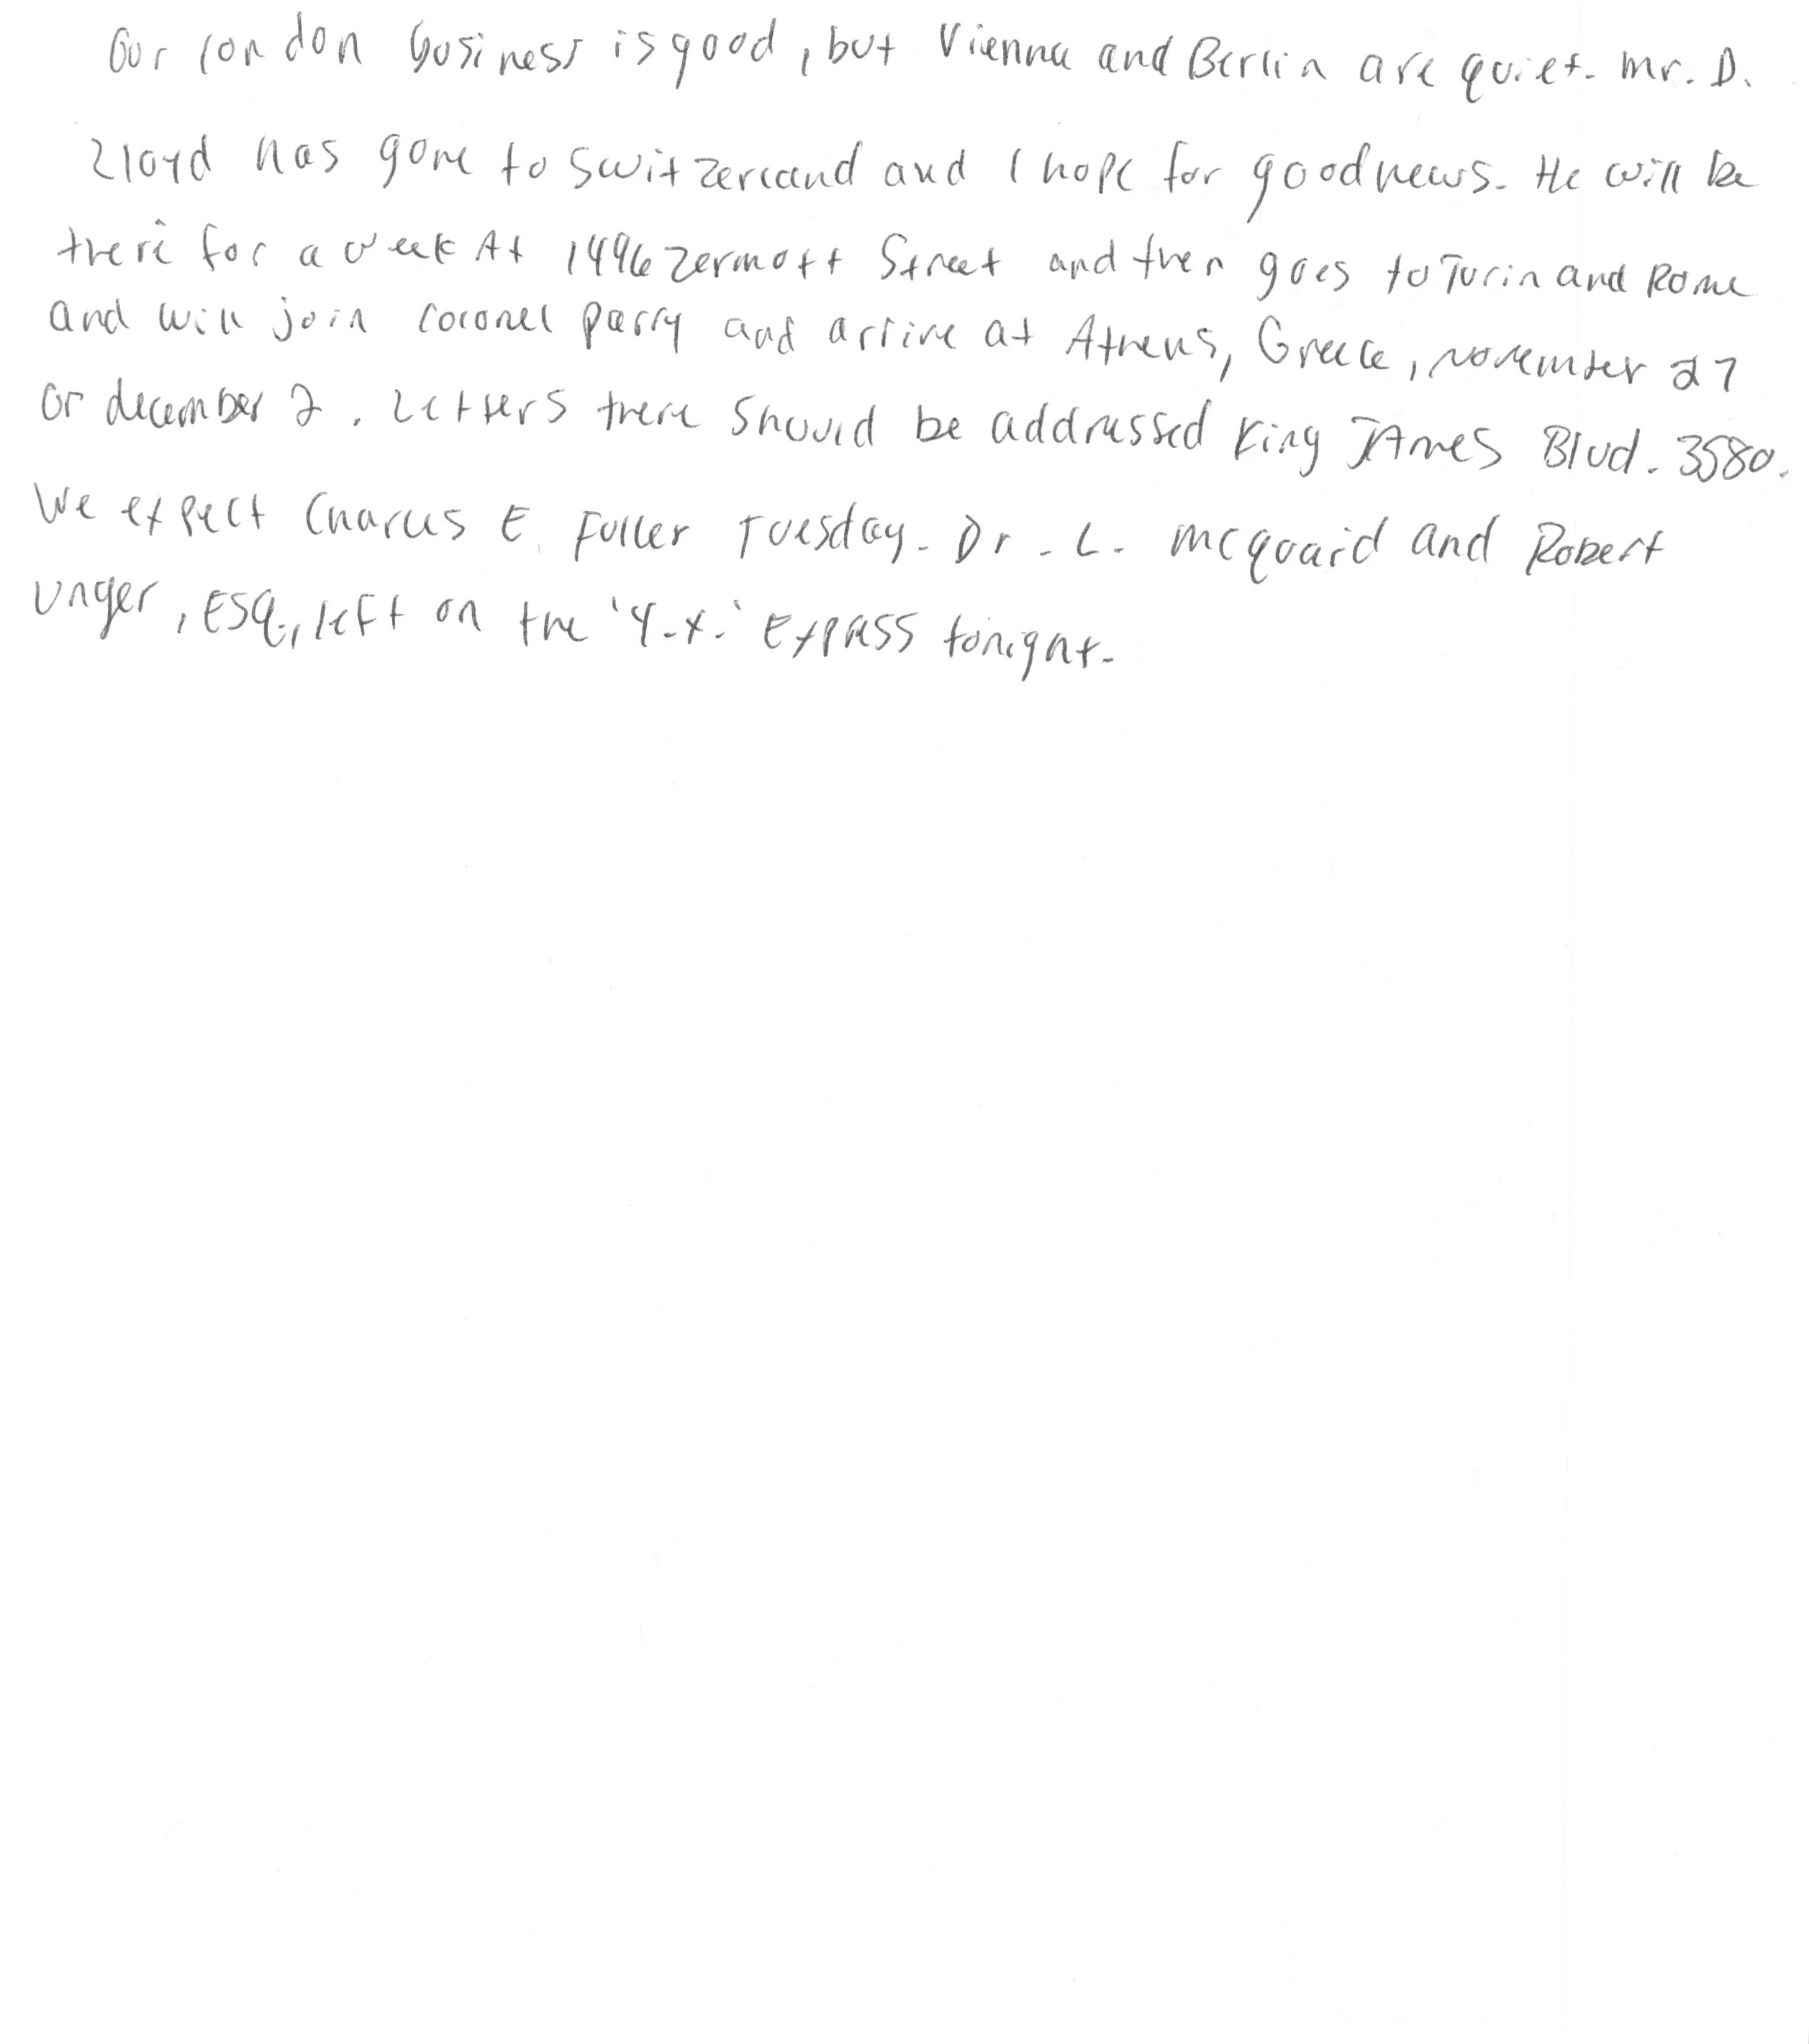 Our London business is good, but Vienna and Berlin are quiet. Mr. D.
Lloyd has gone to Switzerland and I hope for good news. He will be
there for a week At 1496 Zermott Street and then goes to Turin and Rome
and will join Colonel Parry and arrive at Athens, Greece, November 27
or december 2. Letters there should be addressed King JAmes Blvd. 3580.
We expect Charles E. Fuller Tuesday. Dr. L. McQuaid and Robert
Unger, Esq., left on the 'Y.X.' Express tonight.